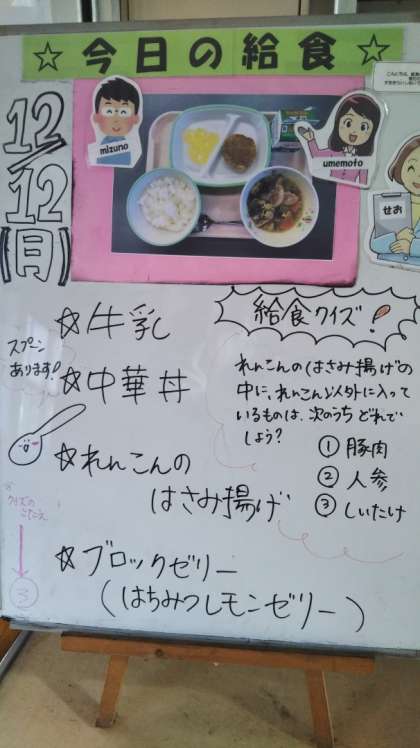 ☆今日の給食☆
12/12【日】
mizuno
umemoto
せお
☆牛乳
スプーン
あります!
☆中華丼
☆れんこんの
はさみ揚げ
☆ブロックゼリー
(はちみつレモンゼリー)
給食クイズ!
れんこんのはさみ揚げの
中に、れんこん以外に入って
いるものは、次のうちどれで
しょう?
①豚肉
②人参
③しいたけ
クイズの
こたえ
③